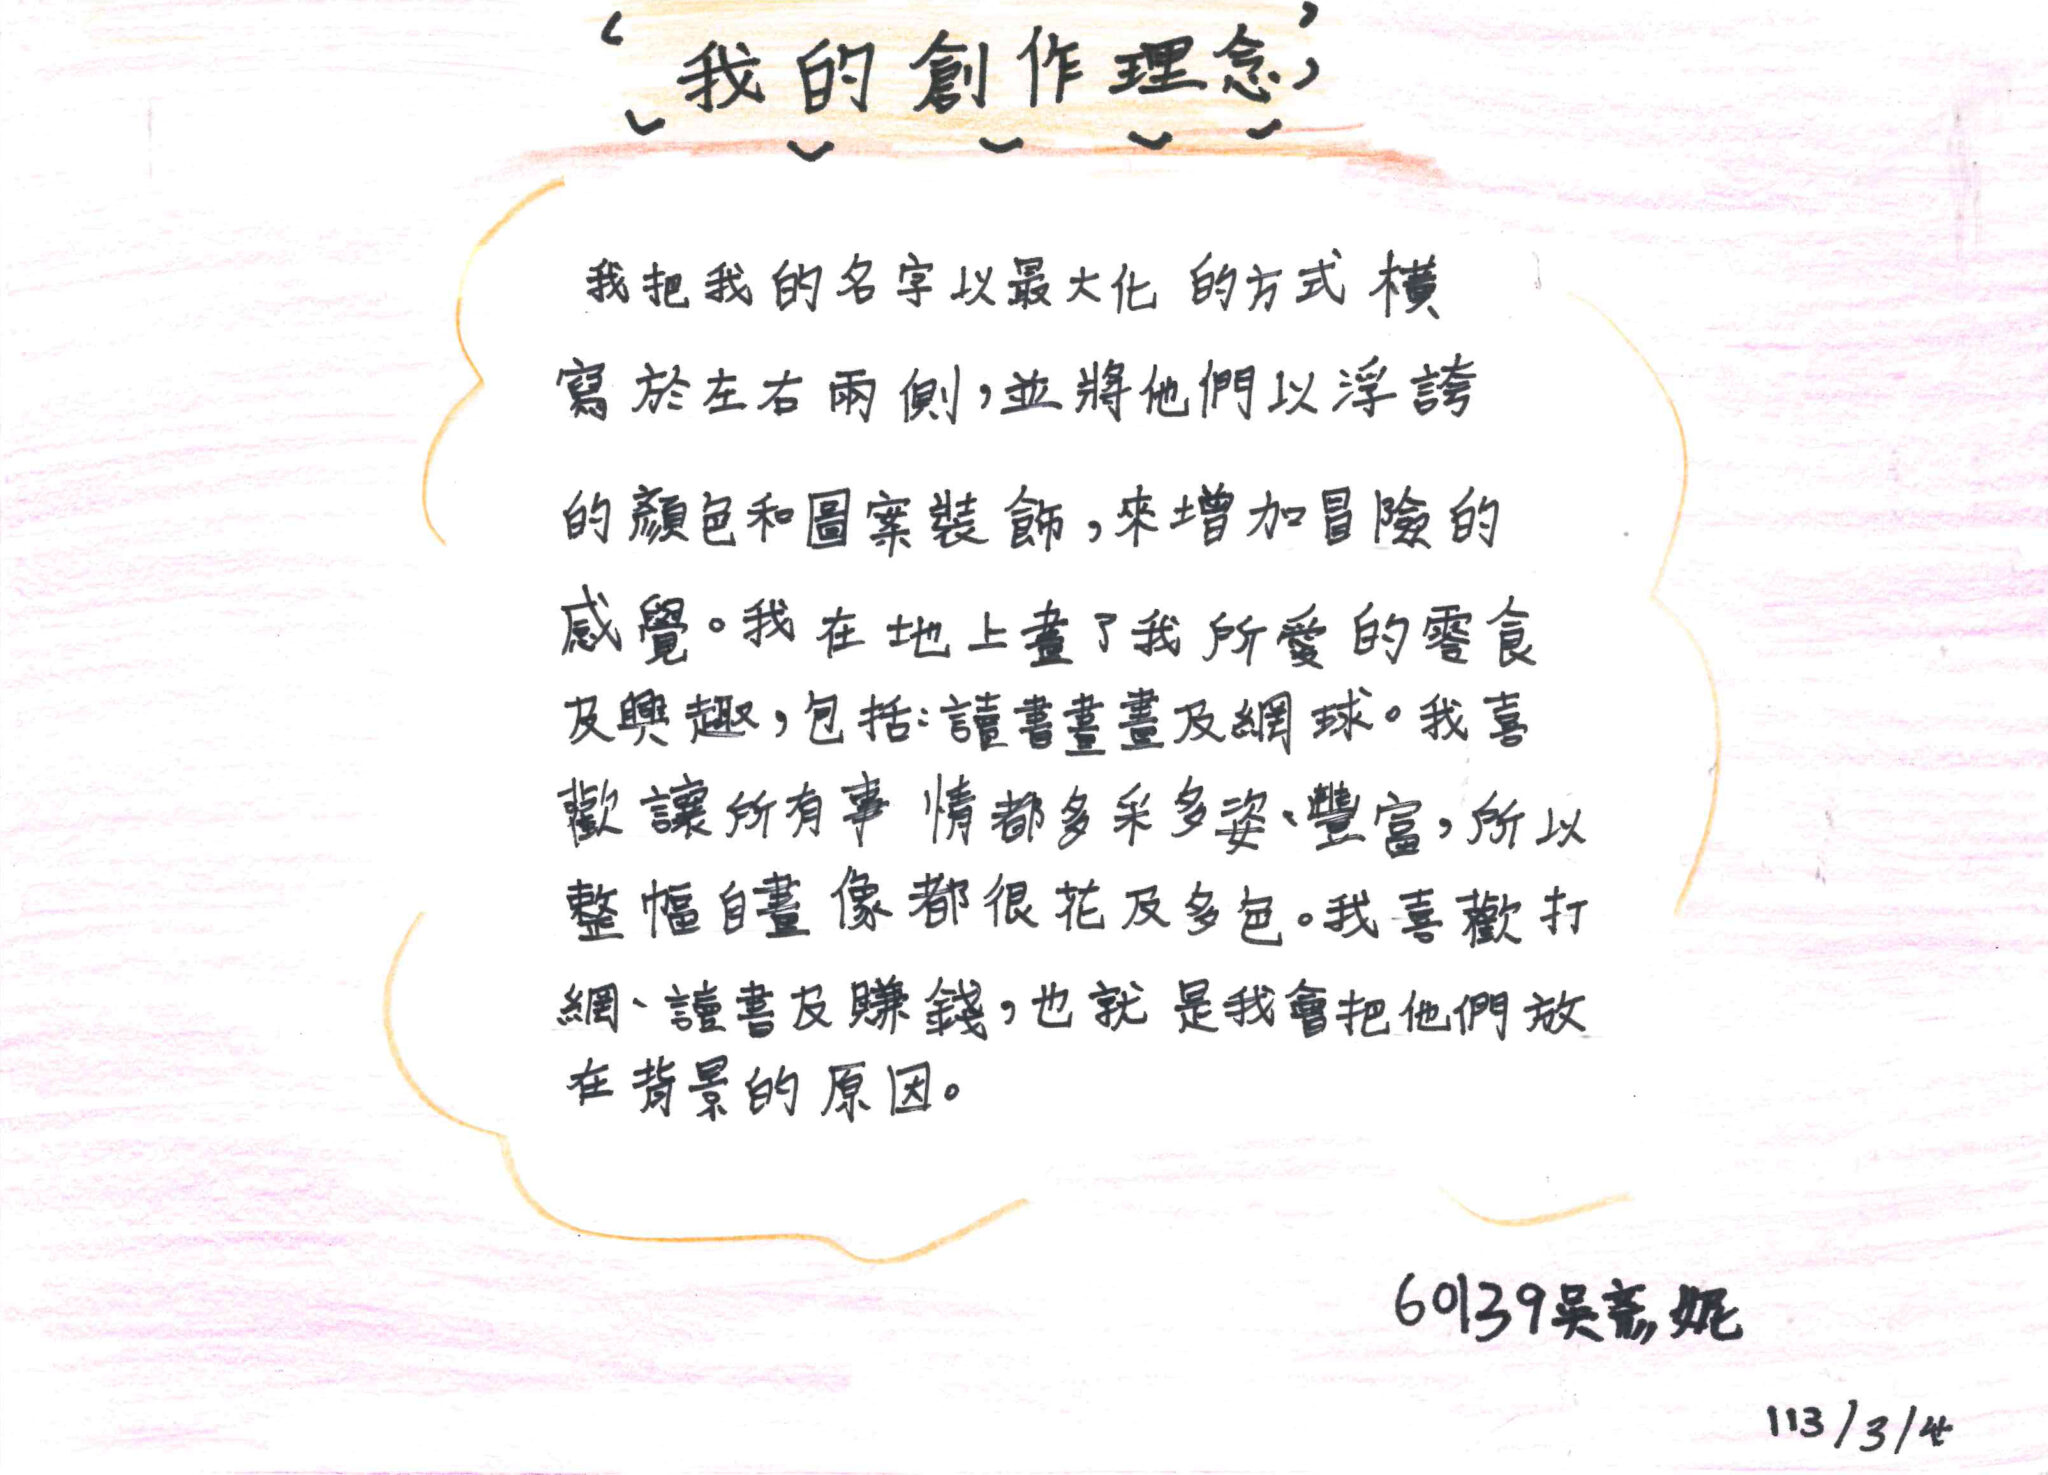 我的創作理念
我把我的名字以最大化的方式橫
寫於左右兩側，並將他們以浮誇
的顏色和圖案裝飾，來增加冒險的
感覺。我在地上畫了我所愛的零食
及興趣，包括：讀書畫畫及網球。我喜
歡讓所有事情都多采多姿、豐富，所以
整幅自畫像都很花及多色。我喜歡打
網、讀書及賺錢，也就是我會把他們放
在背景的原因。
60139吳妮
113/3/4